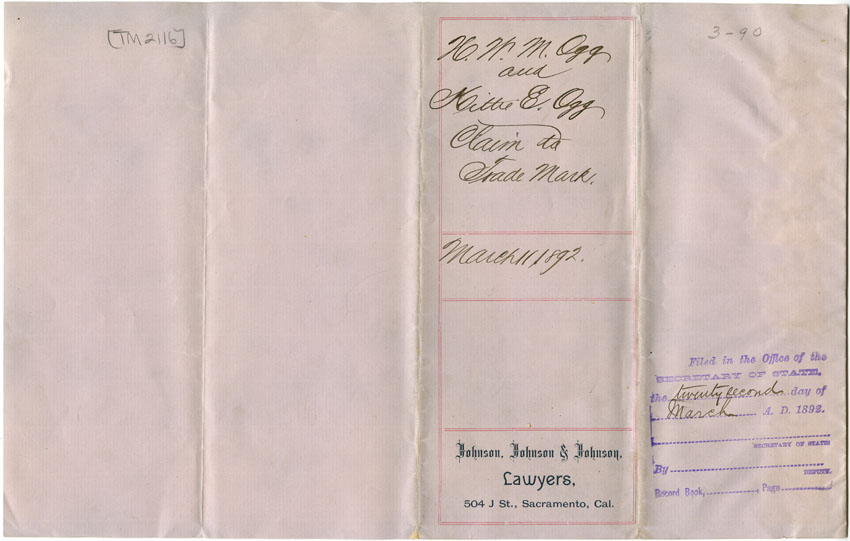 [TM2116]
H. W. M. Ogg
and
Kittie E. Ogg
Claim to
Trade Mark.
March 11, 1892.
Johnson, Johnson & Johnson,
Lawyers,
504 J St., Sacramento, Cal.
3-90
Filed in the Office of the
SECRETARY OF STATE,
the twenty second day of
March A. D. 1892.
SECRETARY OF STATE
By
DEPUTY.
Record Book, , Page